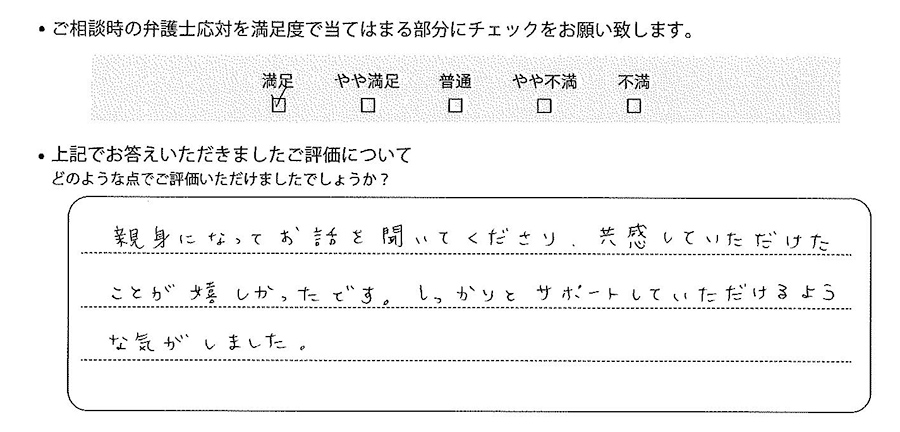 ・ご相談時の弁護士応対を満足度で当てはまる部分にチェックをお願い致します。
満足 やや満足 普通 やや不満 不満
☑ □ □ □ □
・上記でお答えいただきましたご評価について
どのような点でご評価いただけましたでしょうか？
親身になってお話を聞いてくださり、共感していただけた
ことが嬉しかったです。しっかりとサポートしていただけるよう
な気がしました。